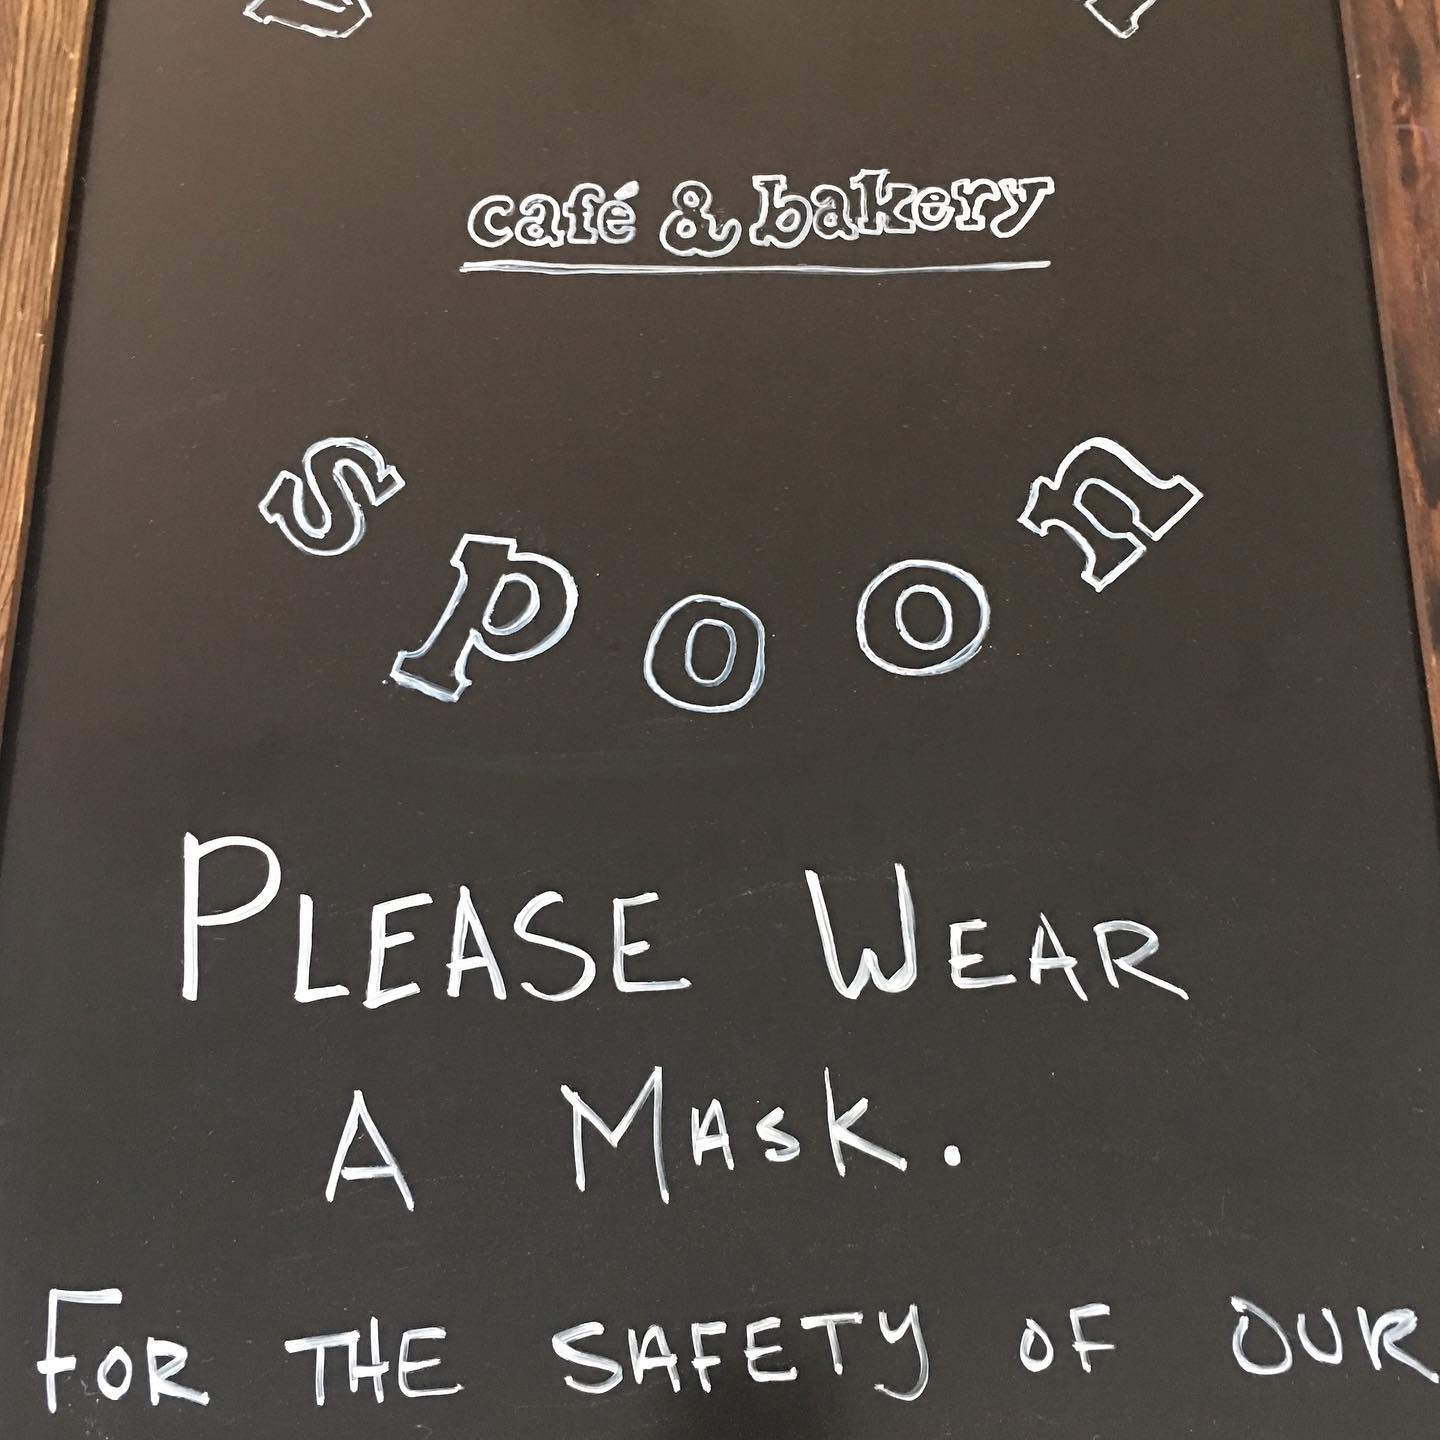 café & bakery
spoon
PLEASE WEAR
A MASK.
FOR THE SAFETY OF OUR